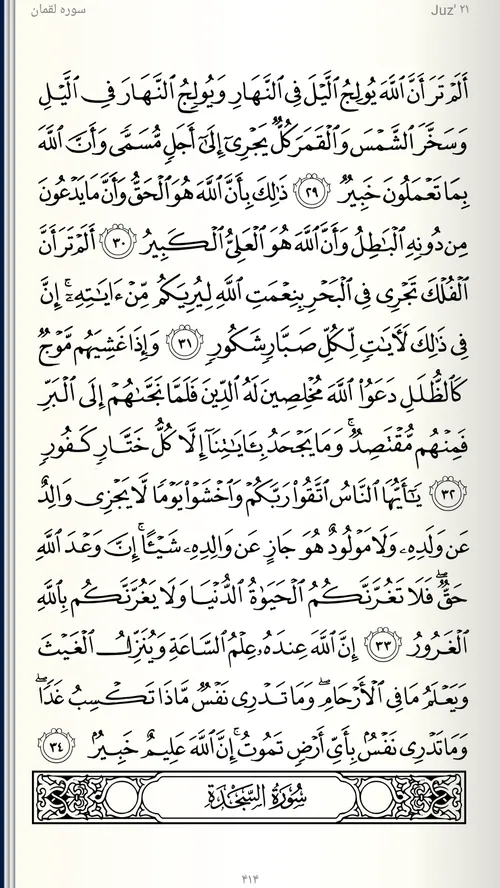 سوره لقمان
Juz' ۲۱
أَلَمْ تَرَ أَنَّ ٱللَّهَ يُولِجُ ٱلَّيْلَ فِى ٱلنَّهَارِ وَيُولِجُ ٱلنَّهَارَ فِى ٱلَّيْلِ
وَسَخَّرَ ٱلشَّمْسَ وَٱلْقَمَرَ كُلٌّ يَجْرِىٓ إِلَىٰٓ أَجَلٍ مُّسَمًّى وَأَنَّ ٱللَّهَ
بِمَا تَعْمَلُونَ خَبِيرٌ ٢٩ ذَٰلِكَ بِأَنَّ ٱللَّهَ هُوَ ٱلْحَقُّ وَأَنَّ مَا يَدْعُونَ
مِن دُونِهِ ٱلْبَٰطِلُ وَأَنَّ ٱللَّهَ هُوَ ٱلْعَلِىُّ ٱلْكَبِيرُ ٣٠ أَلَمْ تَرَ أَنَّ
ٱلْفُلْكَ تَجْرِى فِى ٱلْبَحْرِ بِنِعْمَتِ ٱللَّهِ لِيُرِيَكُم مِّنْ ءَايَٰتِهِۦٓ ۚ إِنَّ
فِى ذَٰلِكَ لَءَايَٰتٍ لِّكُلِّ صَبَّارٍ شَكُورٍ ٣١ وَإِذَا غَشِيَهُم مَّوْجٌ
كَٱلظُّلَلِ دَعَوُا۟ ٱللَّهَ مُخْلِصِينَ لَهُ ٱلدِّينَ فَلَمَّا نَجَّىٰهُمْ إِلَى ٱلْبَرِّ
فَمِنْهُم مُّقْتَصِدٌ ۚ وَمَا يَجْحَدُ بِـَٔايَٰتِنَآ إِلَّا كُلُّ خَتَّارٍ كَفُورٍ
٣٢ يَٰٓأَيُّهَا ٱلنَّاسُ ٱتَّقُوا۟ رَبَّكُمْ وَٱخْشَوْا۟ يَوْمًا لَّا يَجْزِى وَالِدٌ
عَن وَلَدِهِۦ وَلَا مَوْلُودٌ هُوَ جَازٍ عَن وَالِدِهِۦ شَيْـًٔا ۚ إِنَّ وَعْدَ ٱللَّهِ
حَقٌّ ۖ فَلَا تَغُرَّنَّكُمُ ٱلْحَيَوٰةُ ٱلدُّنْيَا وَلَا يَغُرَّنَّكُم بِٱللَّهِ
ٱلْغَرُورُ ٣٣ إِنَّ ٱللَّهَ عِندَهُۥ عِلْمُ ٱلسَّاعَةِ وَيُنَزِّلُ ٱلْغَيْثَ
وَيَعْلَمُ مَا فِى ٱلْأَرْحَامِ ۖ وَمَا تَدْرِى نَفْسٌ مَّاذَا تَكْسِبُ غَدًا ۖ
وَمَا تَدْرِى نَفْسٌۢ بِأَىِّ أَرْضٍ تَمُوتُ ۚ إِنَّ ٱللَّهَ عَلِيمٌ خَبِيرٌۢ ٣٤
سُورَةُ السَّجْدَةِ
۴۱۴